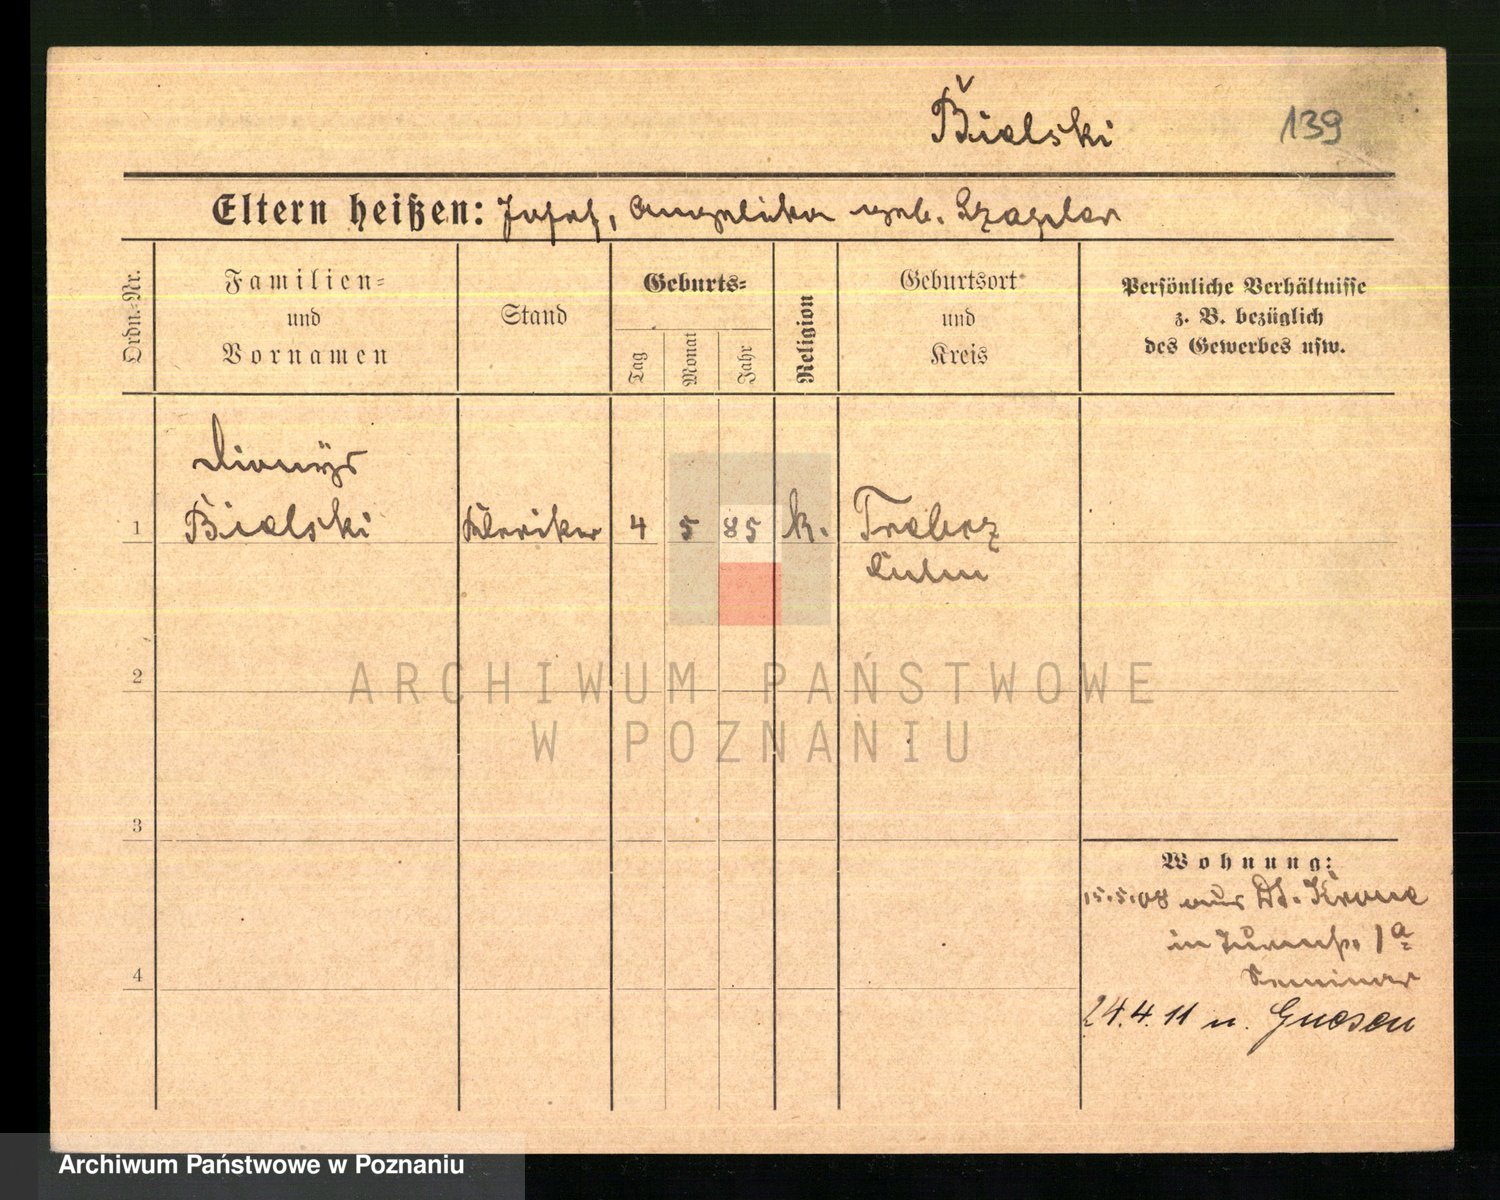 Bialski
139
Eltern heißen: Josef, Angelika geb. Czaplar
Ordn.-Nr.
Familien-
und
Vornamen
Stand
Geburts-
Tag
Monat
Jahr
Religion
Geburtsort
und
Kreis
Persönliche Verhältnisse
z. B. bezüglich
des Gewerbes usw.
Dionys
1 Bialski Kleriker 4 5 85 k. Trebcz
Culm
2
ARCHIWUM PAŃSTWOWE
W POZNANIU
3
Wohnung:
15.5.08 aus Dt. Krone
in 1a
Seminar
4
24.4.11 n. Gnesen
Archiwum Państwowe w Poznaniu